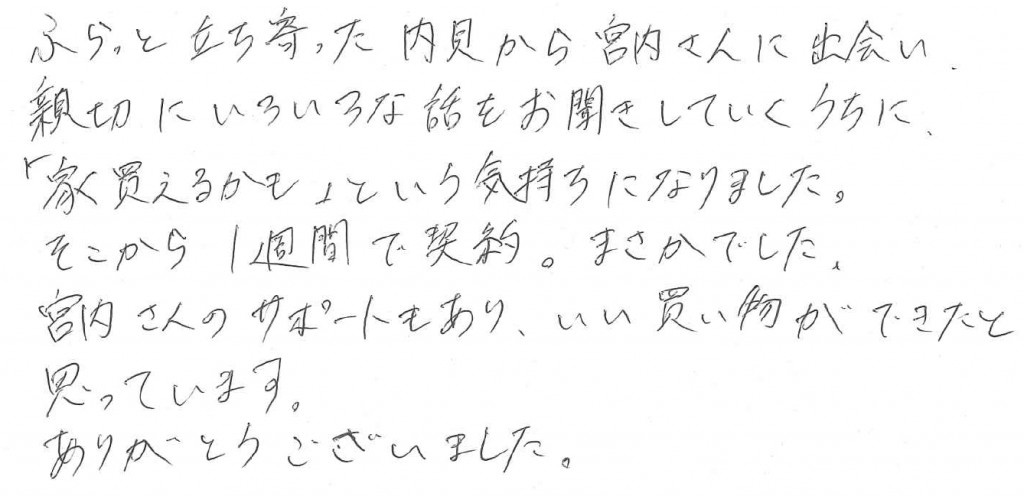 ふらっと立ち寄った内見から宮内さんに出会い、
親切にいろいろな話をお聞きしていくうちに、
「家買えるかも」という気持ちになりました。
そこから1週間で契約。まさかでした、
宮内さんのサポートもあり、いい買い物ができたと
思っています。
ありがとうございました。